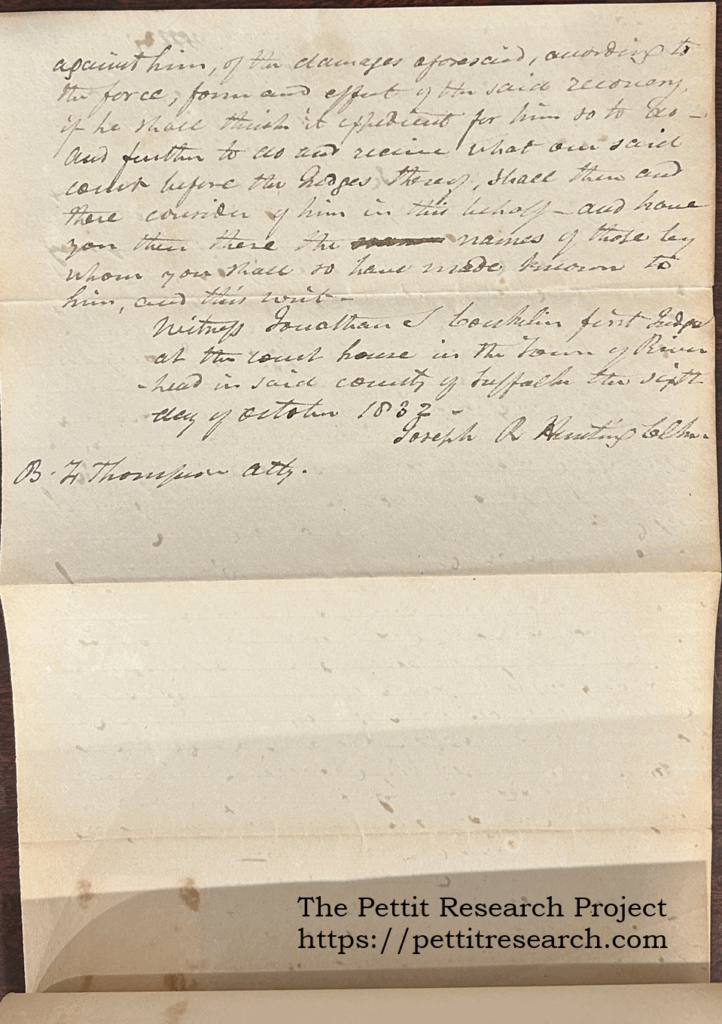 against him, of the damages aforesaid, according to
the force, form and effect of the said recovery,
if he shall think it expedient for him so to do -
and further to do and receive what our said
court before the Judges thereof, shall then and
there consider of him in this behalf - and have
you then there the names of those by
whom you shall so have made known to
him, and this writ -
Witness Jonathan S Conklin first Judge
at the court house in the town of River
-head in said county of Suffolk the sixth
day of october 1832 -
Joseph R Hunting Clk.
B. F Thompson atty.
The Pettit Research Project
https://pettitresearch.com